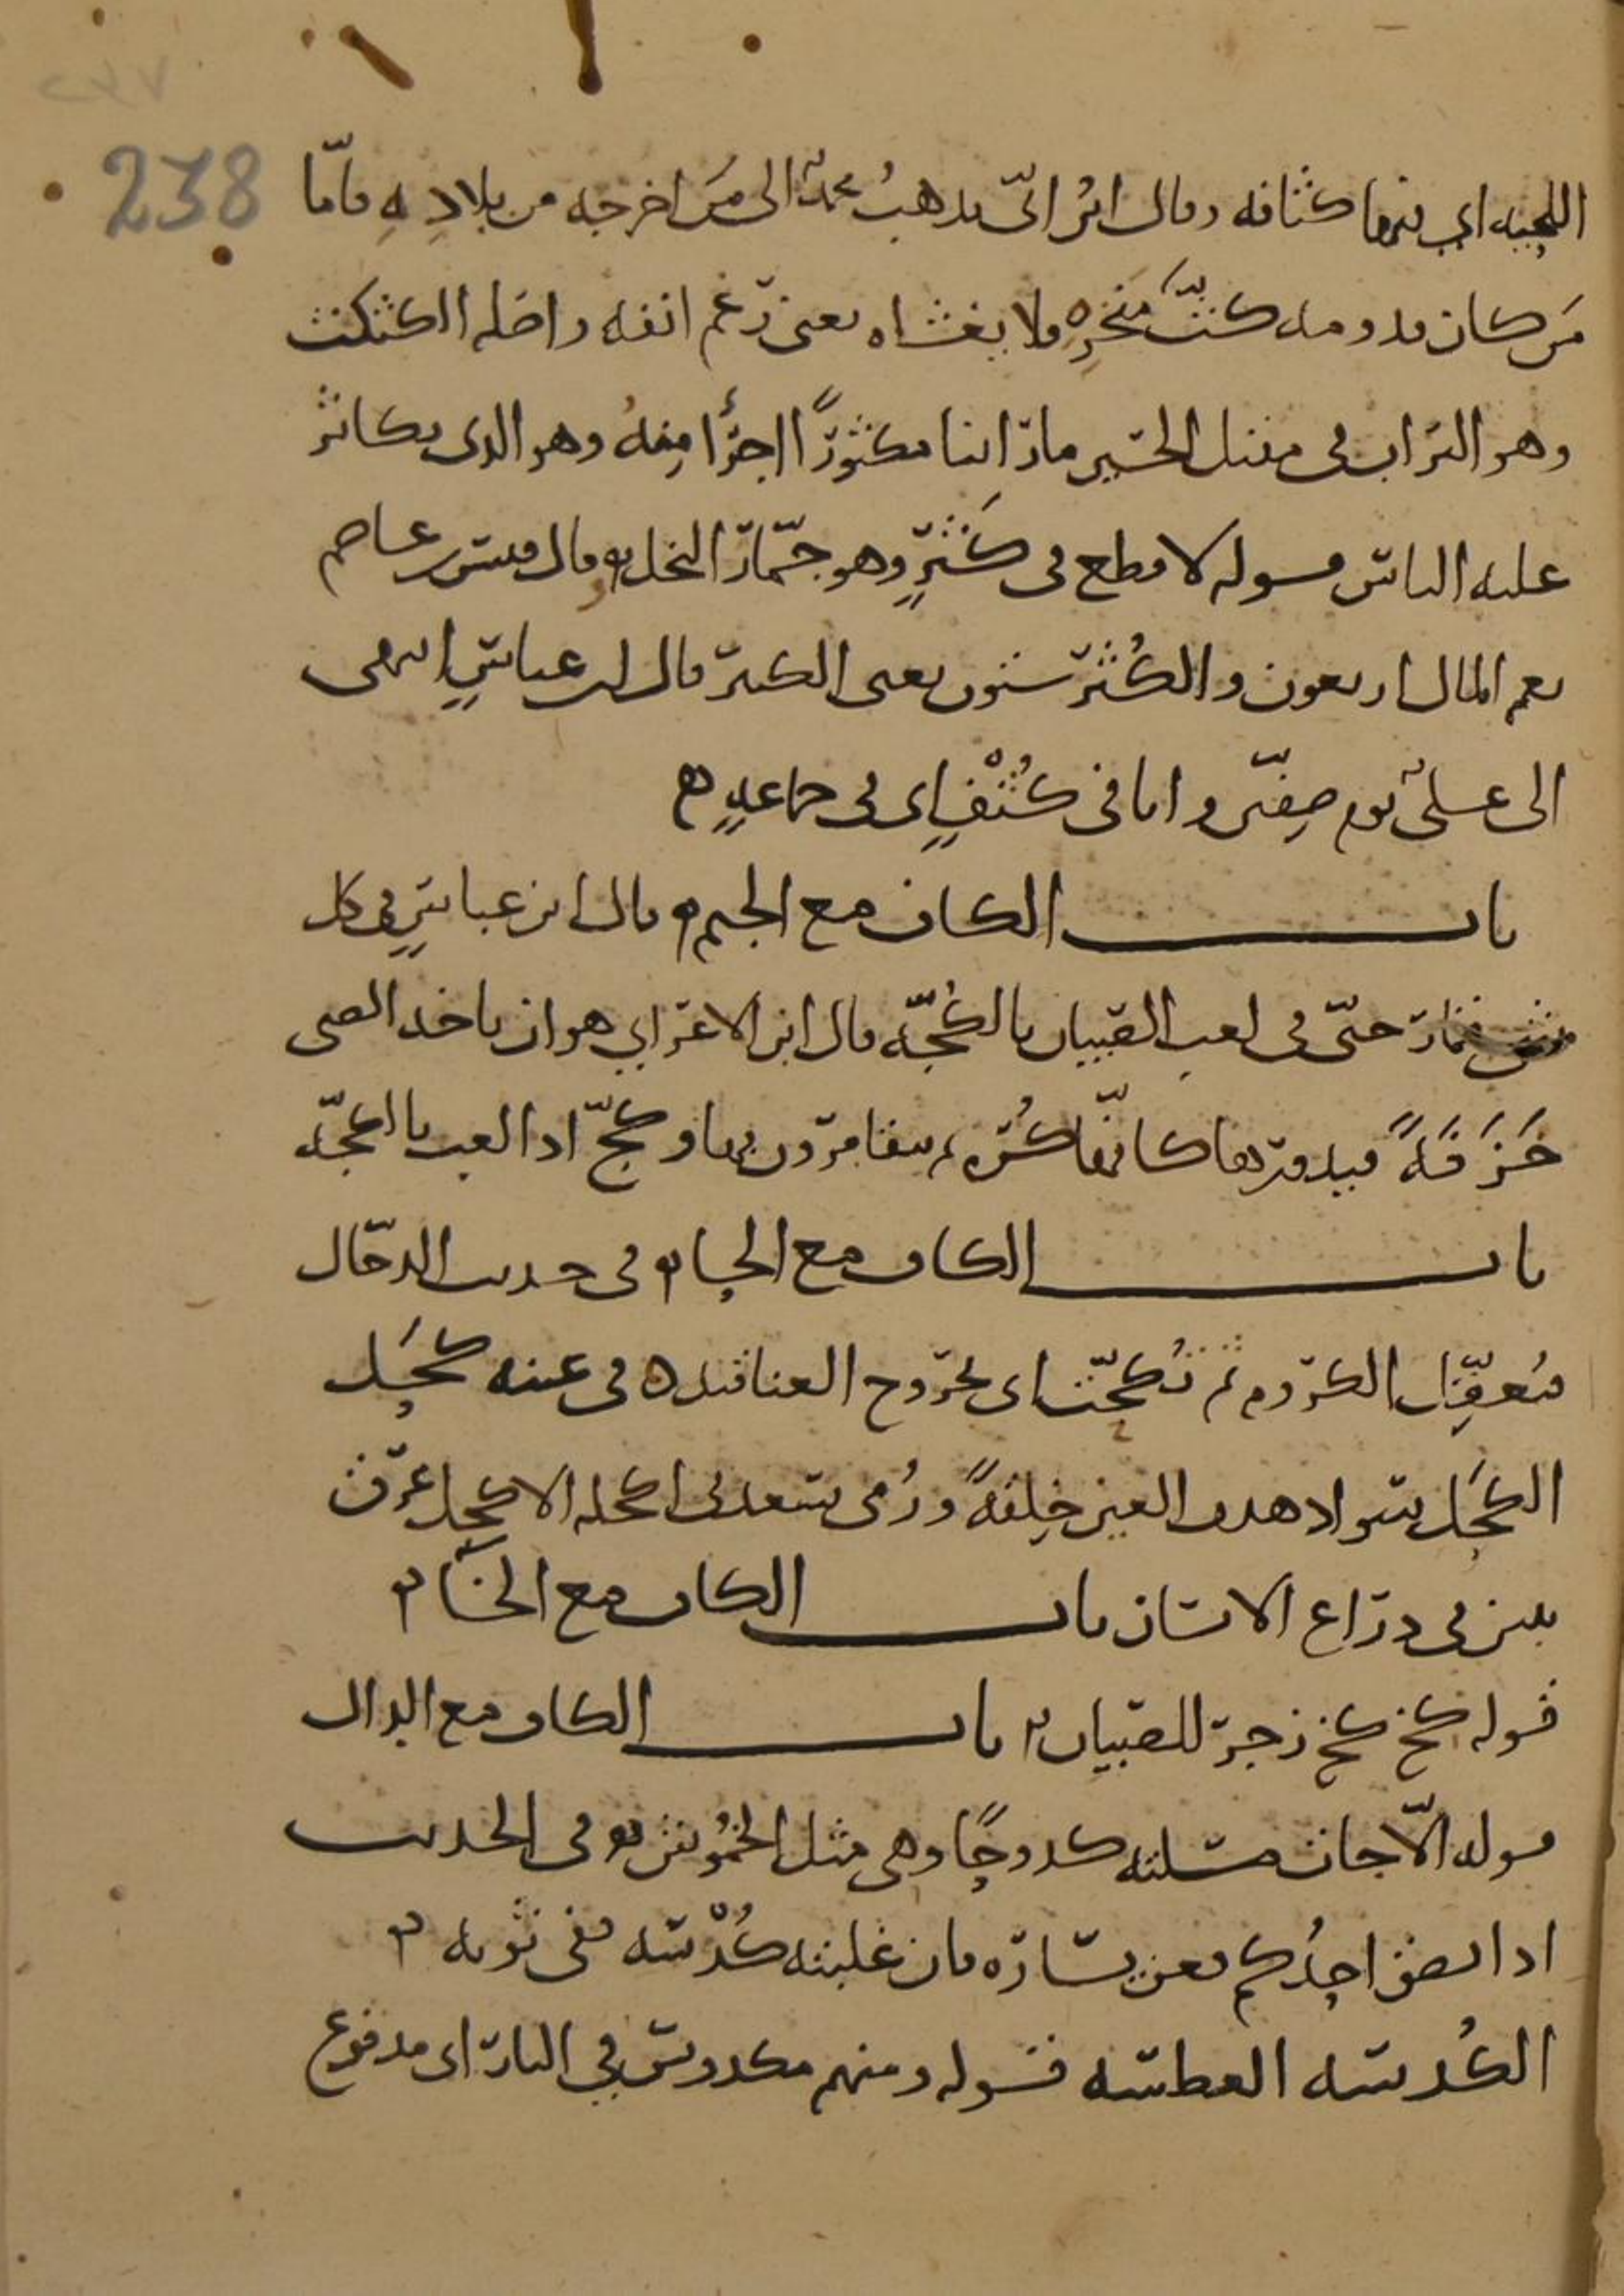 ٢٣٧
238
اللحيه اي فيها كثافه وقال ابن ابيّ يذهب محمد الى من اخرجه من بلاده فامّا
من كان قدومه كثّ منخره فلا يغشاه يعني رغم انفه واصله الكثكث
وهو التراب في مقتل الحسين ما راينا مكثورًا اجرأ منه وهو الذى يكاثر
عليه الناس قوله لا قطع في كثرٍ وهو جمّار النخل وقال قيس بن عاصم
نعم المال اربعون والكُثر ستون يعنى الكثير قال ابن عباسٍ انتهى
الى علىّ يوم صفّين وانا في كُثْفٍ اى فى جماعةٍ
باب الكاف مع الجيم قال ابن عباسٍ في كل
شئ قمار حتّى فى لعب الصبيان بالكُجّه قال ابن الاعرابي هو ان ياخذ الصبى
خَزَفَةً فيدورها كانّها كُره ثم يتقامرون بها وكجّ اذا لعب بالكجّه
باب الكاف مع الحاء فى حديث الدجّال
فتعقل الكروم ثم تُكحّب اى تخرج العناقيد فى عينه كحَل
الكحَل سواد هدب العين خِلقةً ورُمى سعد فى اكحله الاكحل عرق
بين فى ذراع الانسان باب الكاف مع الخاء
قوله كخ كخ زجر للصبيان باب الكاف مع الدال
قوله الّا جات مسلته كدوحًا وهي مثل الخُموش فى الحديث
اذا بصق احدُكم فعن يساره فان غلبته كُدْسه ففي ثوبه
الكُدسه العطسه قوله ومنهم مكدوس في النار اى مدفوع